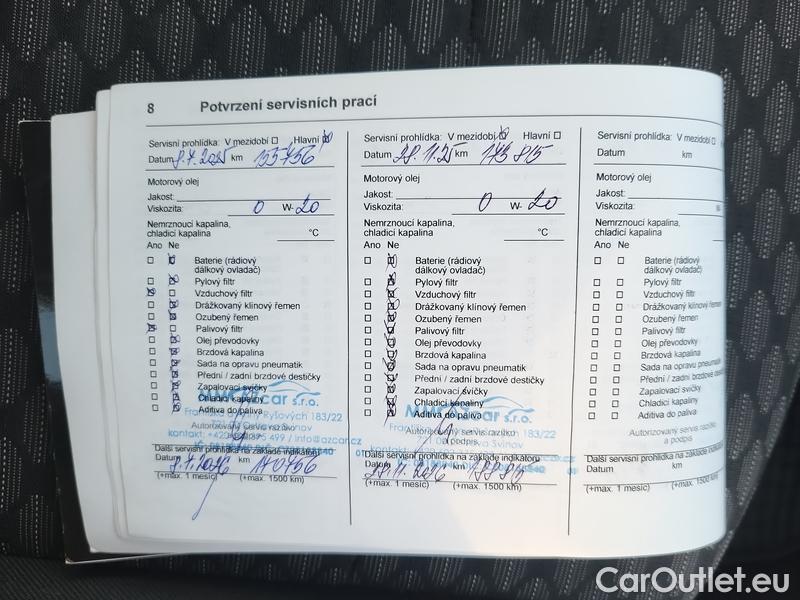 8 Potvrzení servisních prací
Servisní prohlídka: V mezidobí Hlavní
Datum 8.7.2025 km 155756
Motorový olej
Jakost:
Viskozita: 0 W- 20
Nemrznoucí kapalina,
chladicí kapalina °C
Ano Ne
Baterie (rádiový
dálkový ovladač)
Pylový filtr
Vzduchový filtr
Drážkovaný klínový řemen
Ozubený řemen
Palivový filtr
Olej převodovky
Brzdová kapalina
Sada na opravu pneumatik
Přední / zadní brzdové destičky
Zapalovací svíčky
Chladicí kapaliny
Aditiva do paliva
Autorizovaný servis razítko
Další servisní prohlídka na základě indikátorů
Datum 8.7.2026 km 170756
(+max. 1 měsíc) (+max. 1500 km)
Servisní prohlídka: V mezidobí Hlavní
Datum 28.11.25 km 173815
Motorový olej
Jakost:
Viskozita: 0 W- 20
Nemrznoucí kapalina,
chladicí kapalina °C
Ano Ne
Baterie (rádiový
dálkový ovladač)
Pylový filtr
Vzduchový filtr
Drážkovaný klínový řemen
Ozubený řemen
Palivový filtr
Olej převodovky
Brzdová kapalina
Sada na opravu pneumatik
Přední / zadní brzdové destičky
Zapalovací svíčky
Chladicí kapaliny
Aditiva do paliva
Autorizovaný servis razítko
a podpis
Další servisní prohlídka na základě indikátorů
Datum 28.11.2026 km
(+max. 1 měsíc) (+max. 1500 km)
Servisní prohlídka: V mezidobí
Datum km
Motorový olej
Jakost:
Viskozita:
Nemrznoucí kapalina,
chladicí kapalina
Ano Ne
Baterie (rádiový
dálkový ovladač)
Pylový filtr
Vzduchový filtr
Drážkovaný klínový řemen
Ozubený řemen
Palivový filtr
Olej převodovky
Brzdová kapalina
Sada na opravu pneumatik
Přední / zadní brzdové destičky
Zapalovací svíčky
Chladicí kapaliny
Aditiva do paliva
Autorizovaný servis razítko
a podpis
Další servisní prohlídka na základě
Datum km
(+max. 1 měsíc) (+max. 1500
CarOutlet.eu